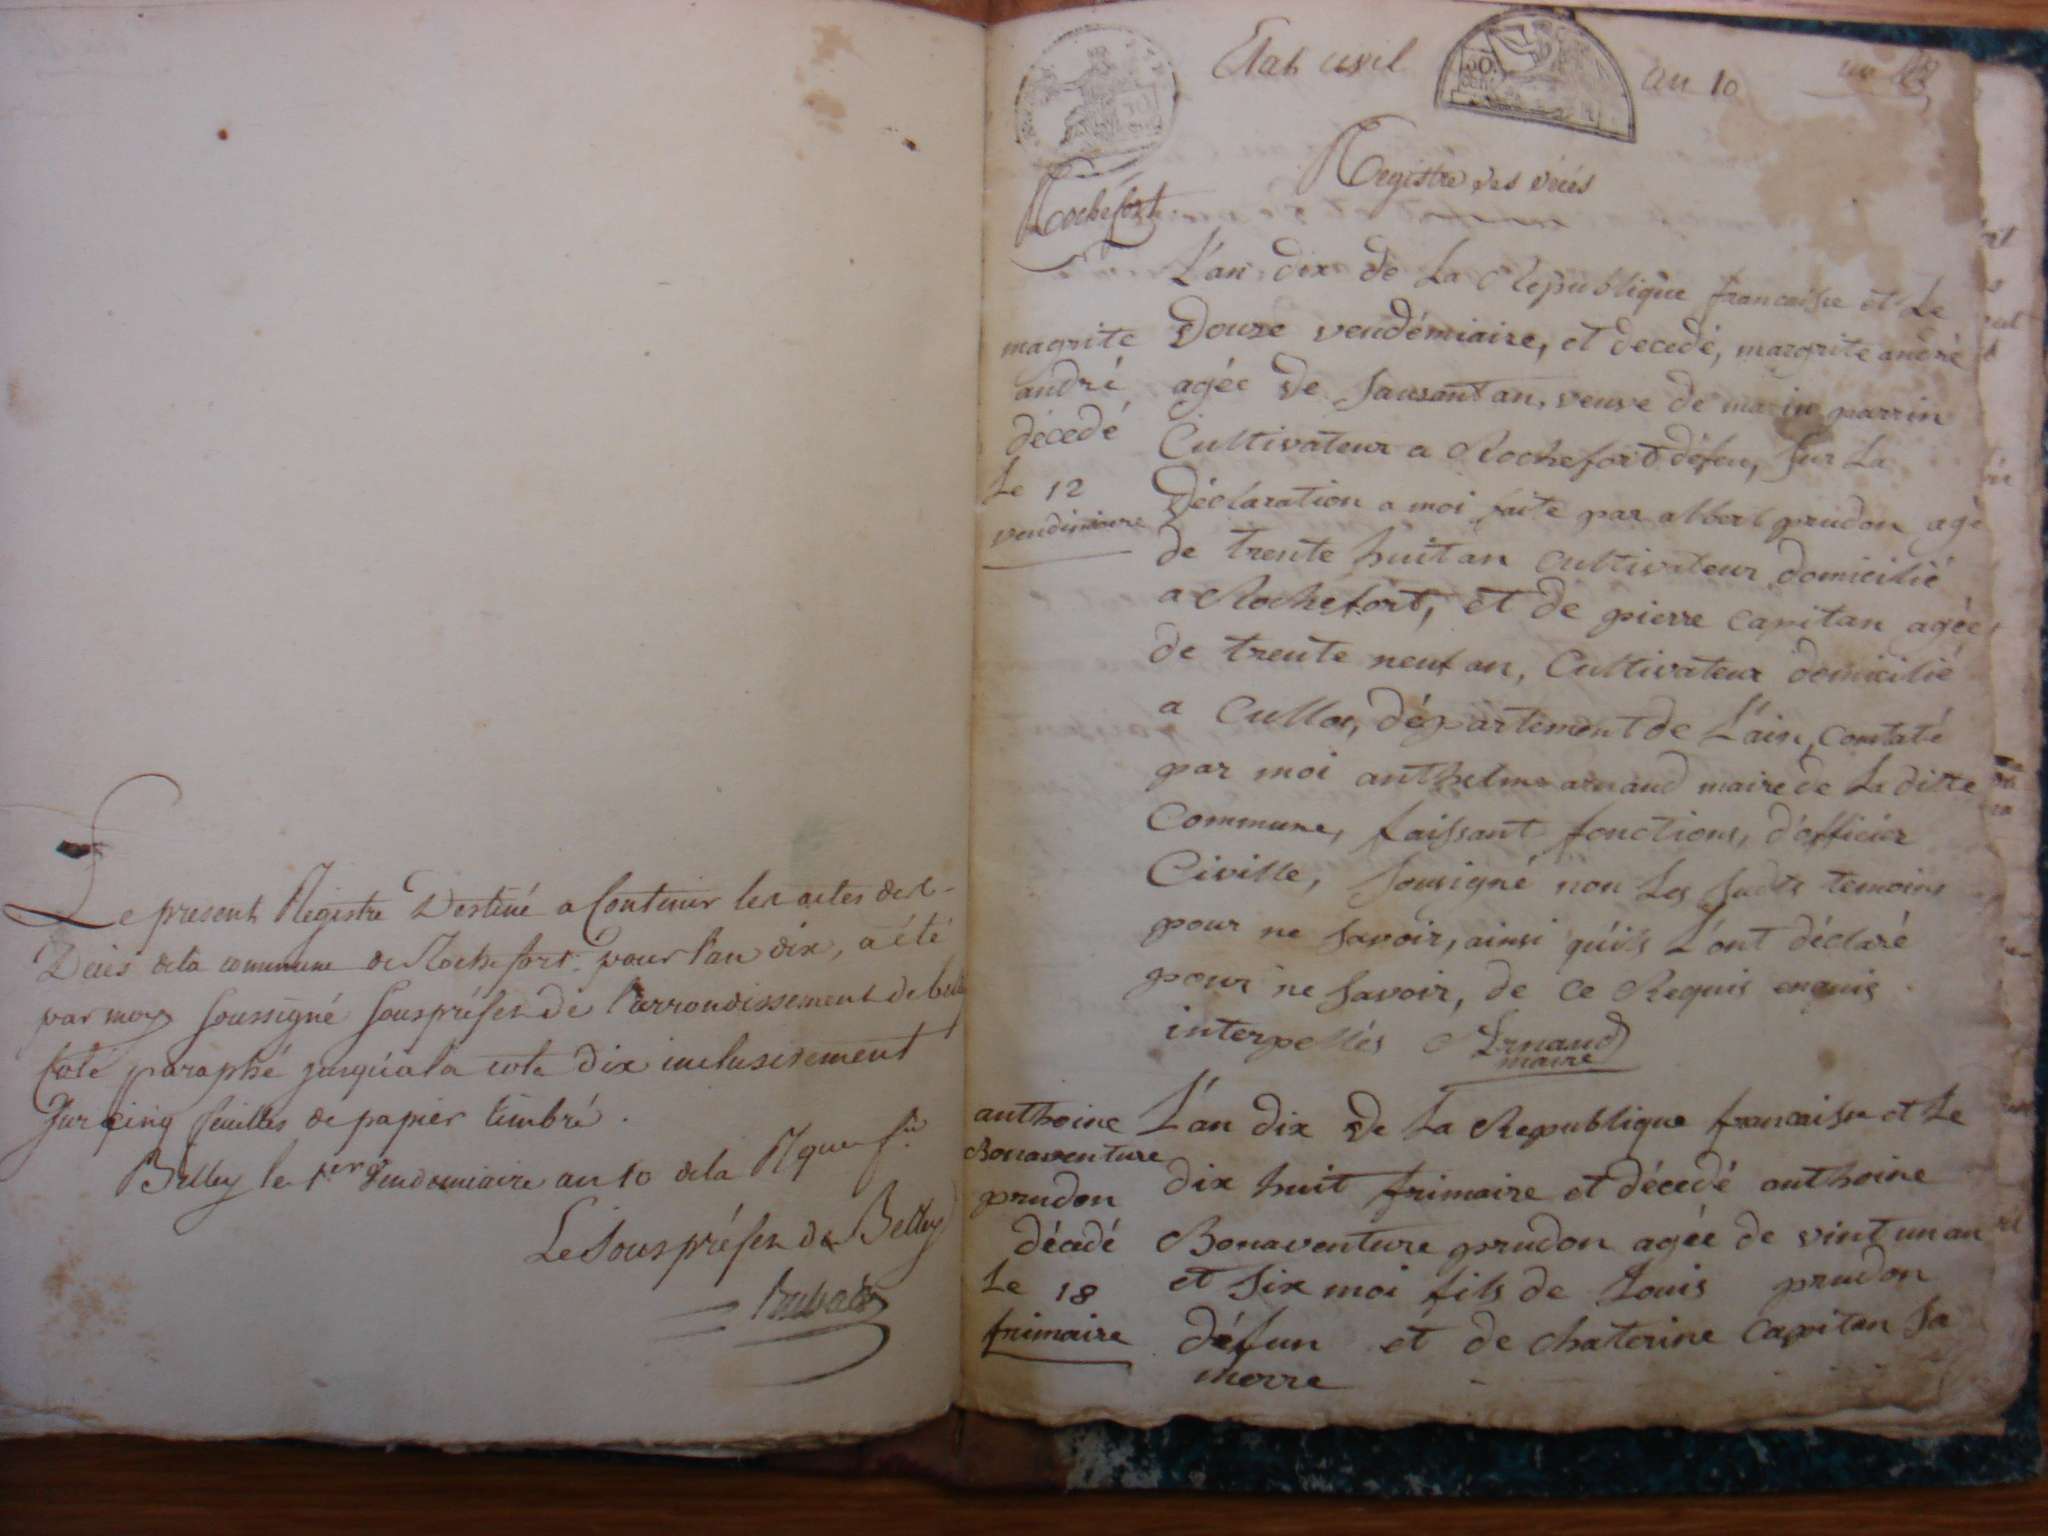 Le present Registre Destiné a Contenir les actes de
Décès de la commune de Rochefort pour l'an dix, a été
par moy soussigné souspréfet de l'arrondissement de
coté paraphé jusqu'a la cote dix inclusivement
sur cinq feuilles de papier timbré.
Belley le 1er Vendemiaire an 10 de la
Le Souspréfet de Belley
Etat civil
an 10
Registre des décés
Rochefort
L'an dix de La Republique francaisse et Le
Douze vendémiaire, et decedé, margrite andré
agée de sausant an, veuve de marin parrin
Cultivateur a Rochefort défun, sur La
Déclaration a moi faite par albert prudon agé
de trente huit an cultivateur domicilié
a Rochefort, et de pierre Capitan agée
de trente neuf an, Cultivateur domicilié
a Culloz, département de L'ain, contaté
par moi anthelme arnaud maire de La ditte
Commune, faissant fonctions, d'officier
Civille, sousigné non Les sudts temoins
pour ne savoir, ainsi qu'ils L'ont déclaré
pour ne savoir, de ce Requis enquis
interpellés Arnaud
maire
magrite
andré
décedé
Le 12
vendimiaire
L'an dix de La Republique francaisse et Le
dix huit frimaire et décedé anthoine
Bonaventure prudon agée de vint un an
et six moi fils de Louis prudon
défun et de chaterine Capitan sa
merre
anthoine
Bonaventure
prudon
décédé
Le 18
frimaire